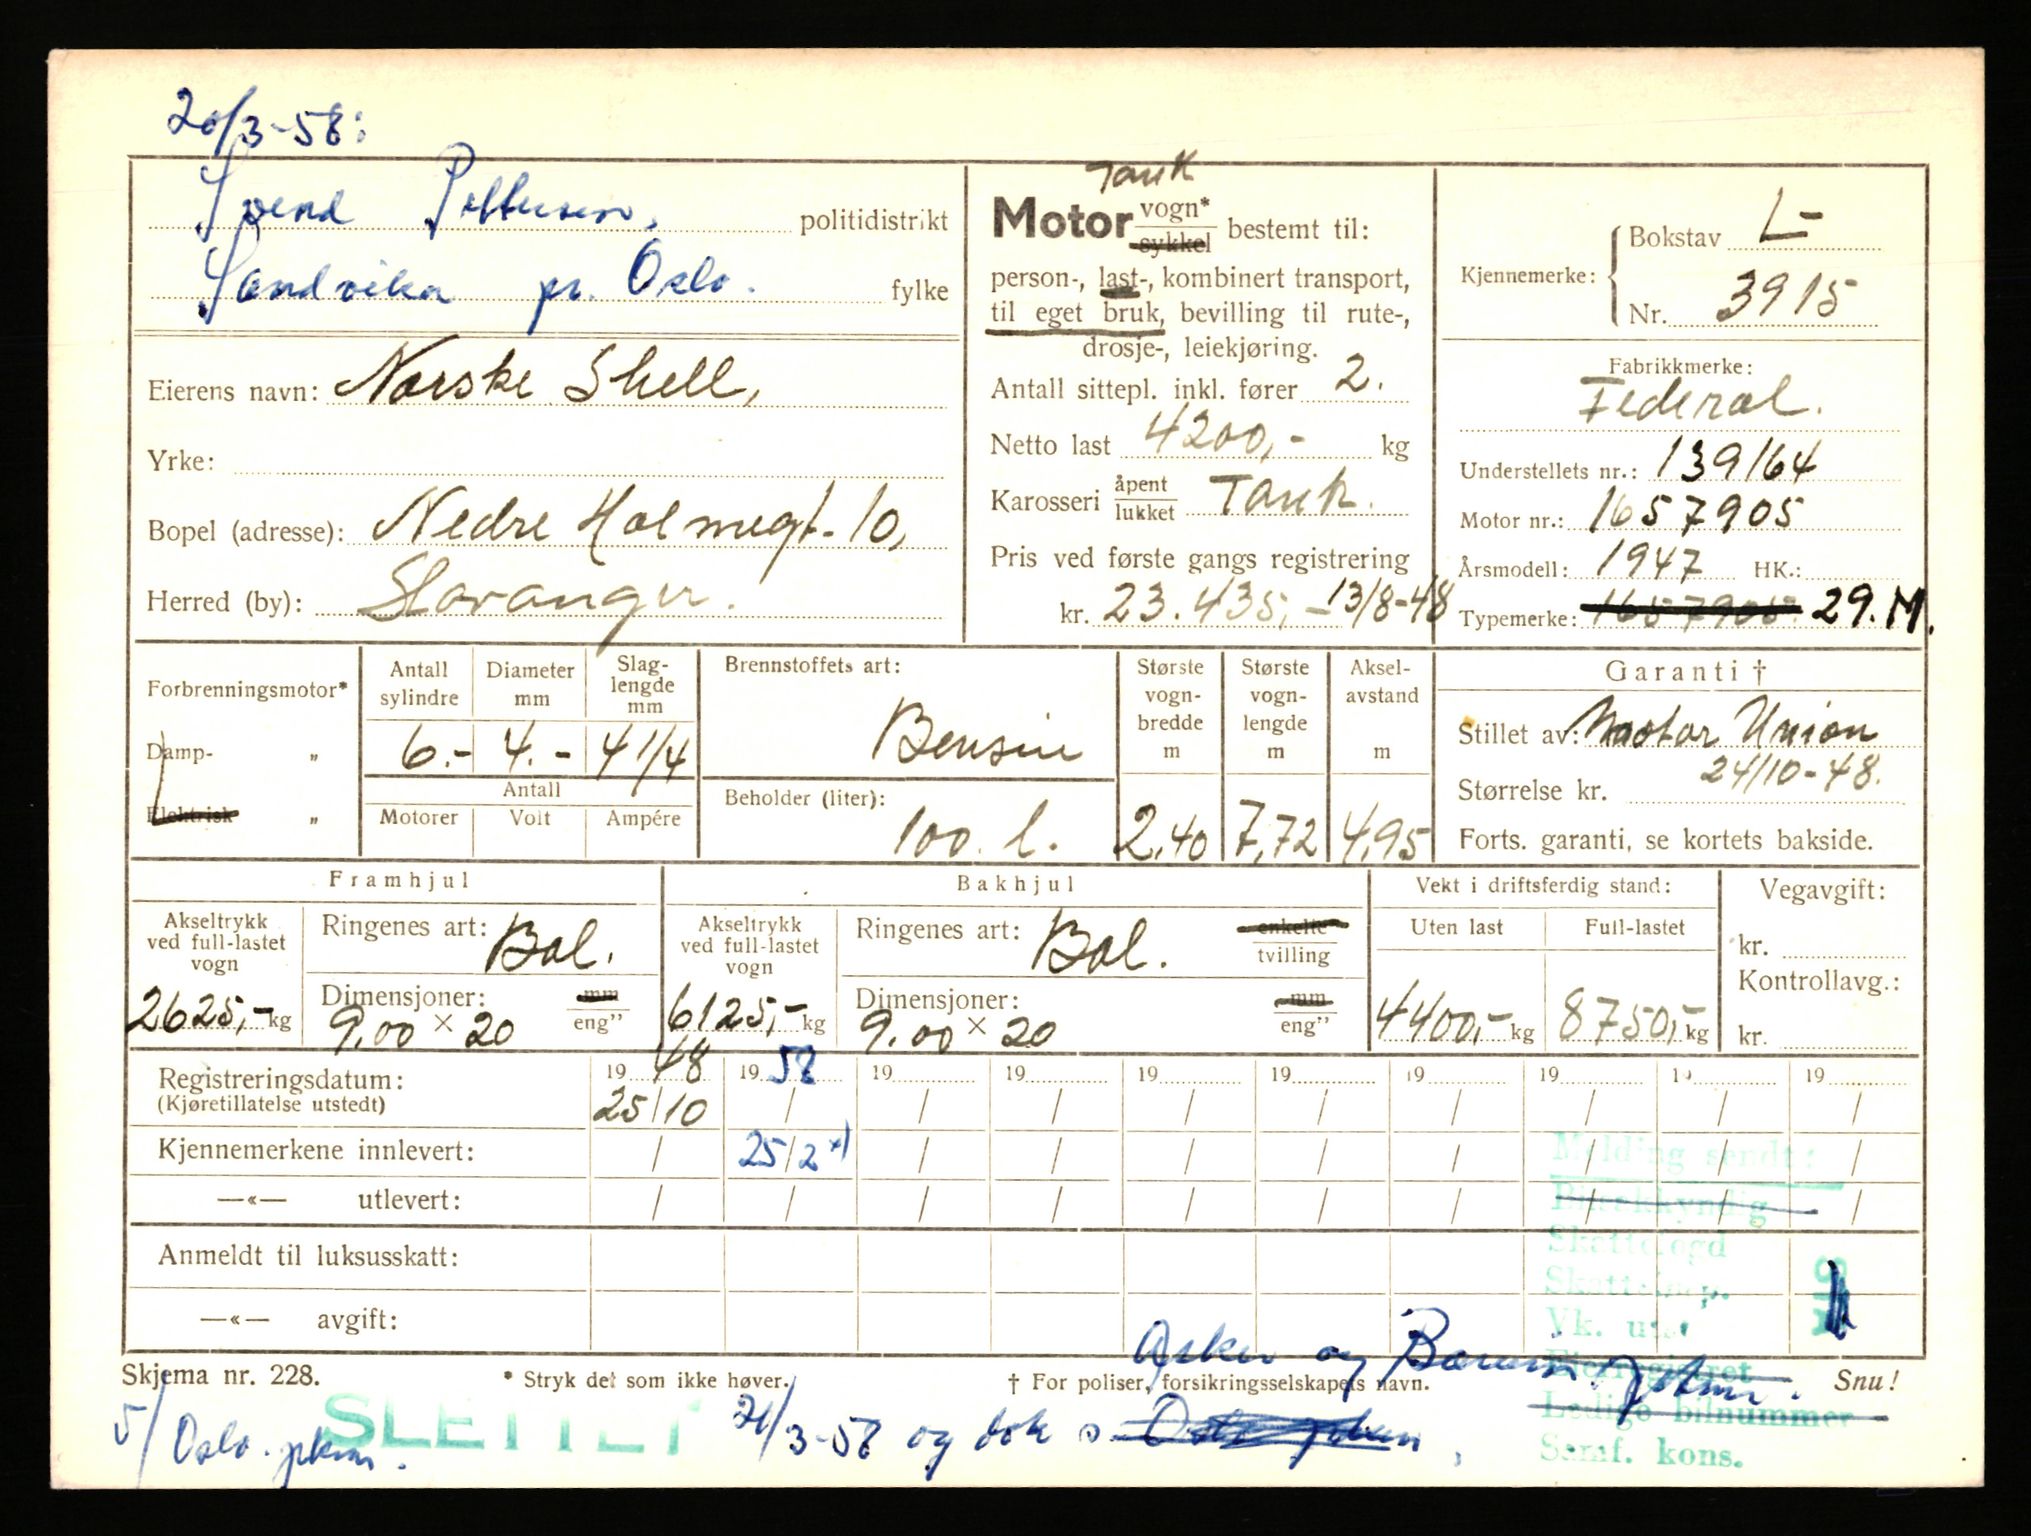 20/3-58:
Svend Pettersen, politidistrikt
Sandvika pr. Oslo. fylke
Eierens navn: Norske Shell,
Yrke:
Bopel (adresse): Nedre Holmegt. 10,
Herred (by): Stavanger.
Tank
Motor vogn* sykkel bestemt til:
person-, last-, kombinert transport,
til eget bruk, bevilling til rute-,
drosje-, leiekjøring.
Antall sittepl. inkl. fører 2.
Netto last 4200,- kg
Karosseri åpent lukket Tank.
Pris ved første gangs registrering
kr. 23.435,- 13/8-48
Kjennemerke: Bokstav L-
Nr. 3915
Fabrikkmerke:
Federal.
Understellets nr.: 139164
Motor nr.: 1657905
Årsmodell: 1947 HK.:
Typemerke: 1657905 29.M.
Forbrenningsmotor*
Damp- „
Elektrisk „
Antall sylindre
Diameter mm
Slag-lengde mm
6.- 4.- 4 1/4
Antall
Motorer Volt Ampére
Brennstoffets art:
Bensin
Beholder (liter):
100. l.
Største vogn-bredde m
2,40
Største vogn-lengde m
7,72
Aksel-avstand m
4,95
Garanti †
Stillet av: Motor Union
24/10-48.
Størrelse kr.
Forts. garanti, se kortets bakside.
Framhjul
Akseltrykk ved full-lastet vogn
2625,- kg
Ringenes art: Bal.
Dimensjoner: mm eng”
9.00 × 20
Bakhjul
Akseltrykk ved full-lastet vogn
6125,- kg
Ringenes art: Bal. enkelte tvilling
Dimensjoner: mm eng”
9.00 × 20
Vekt i driftsferdig stand:
Uten last Full-lastet
4400,- kg 8750,- kg
Vegavgift:
kr.
Kontrollavg.:
kr.
Registreringsdatum: 19 48 19 58 19 19 19 19 19 19 19 19
(Kjøretillatelse utstedt) 25/10 / / / / / / / / /
Kjennemerkene innlevert: / 25/2 x) / / / / / / / /
—«— utlevert: / / / / / / / / / /
Anmeldt til luksusskatt:
—«— avgift:
Melding sendt:
Bilsakkyndig
Skattefogd
Vk. utst
Eierregisteret
Ledige bilnummer
Samf. kons.
Skjema nr. 228.
* Stryk det som ikke høver.
† For poliser, forsikringsselskapets navn.
Snu!
SLETTET
5/ Oslo. pkm.
21/3-58 og dok s.
Asker og Bærum